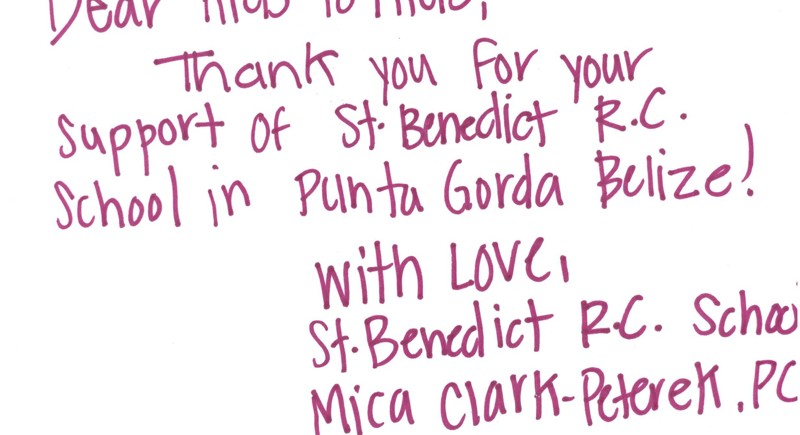 Dear
Thank you for your
Support of St. Benedict R.C.
School in Punta Gorda Belize!
With Love,
St. Benedict R.C. Schoo
Mica Clark-Peterek, PC